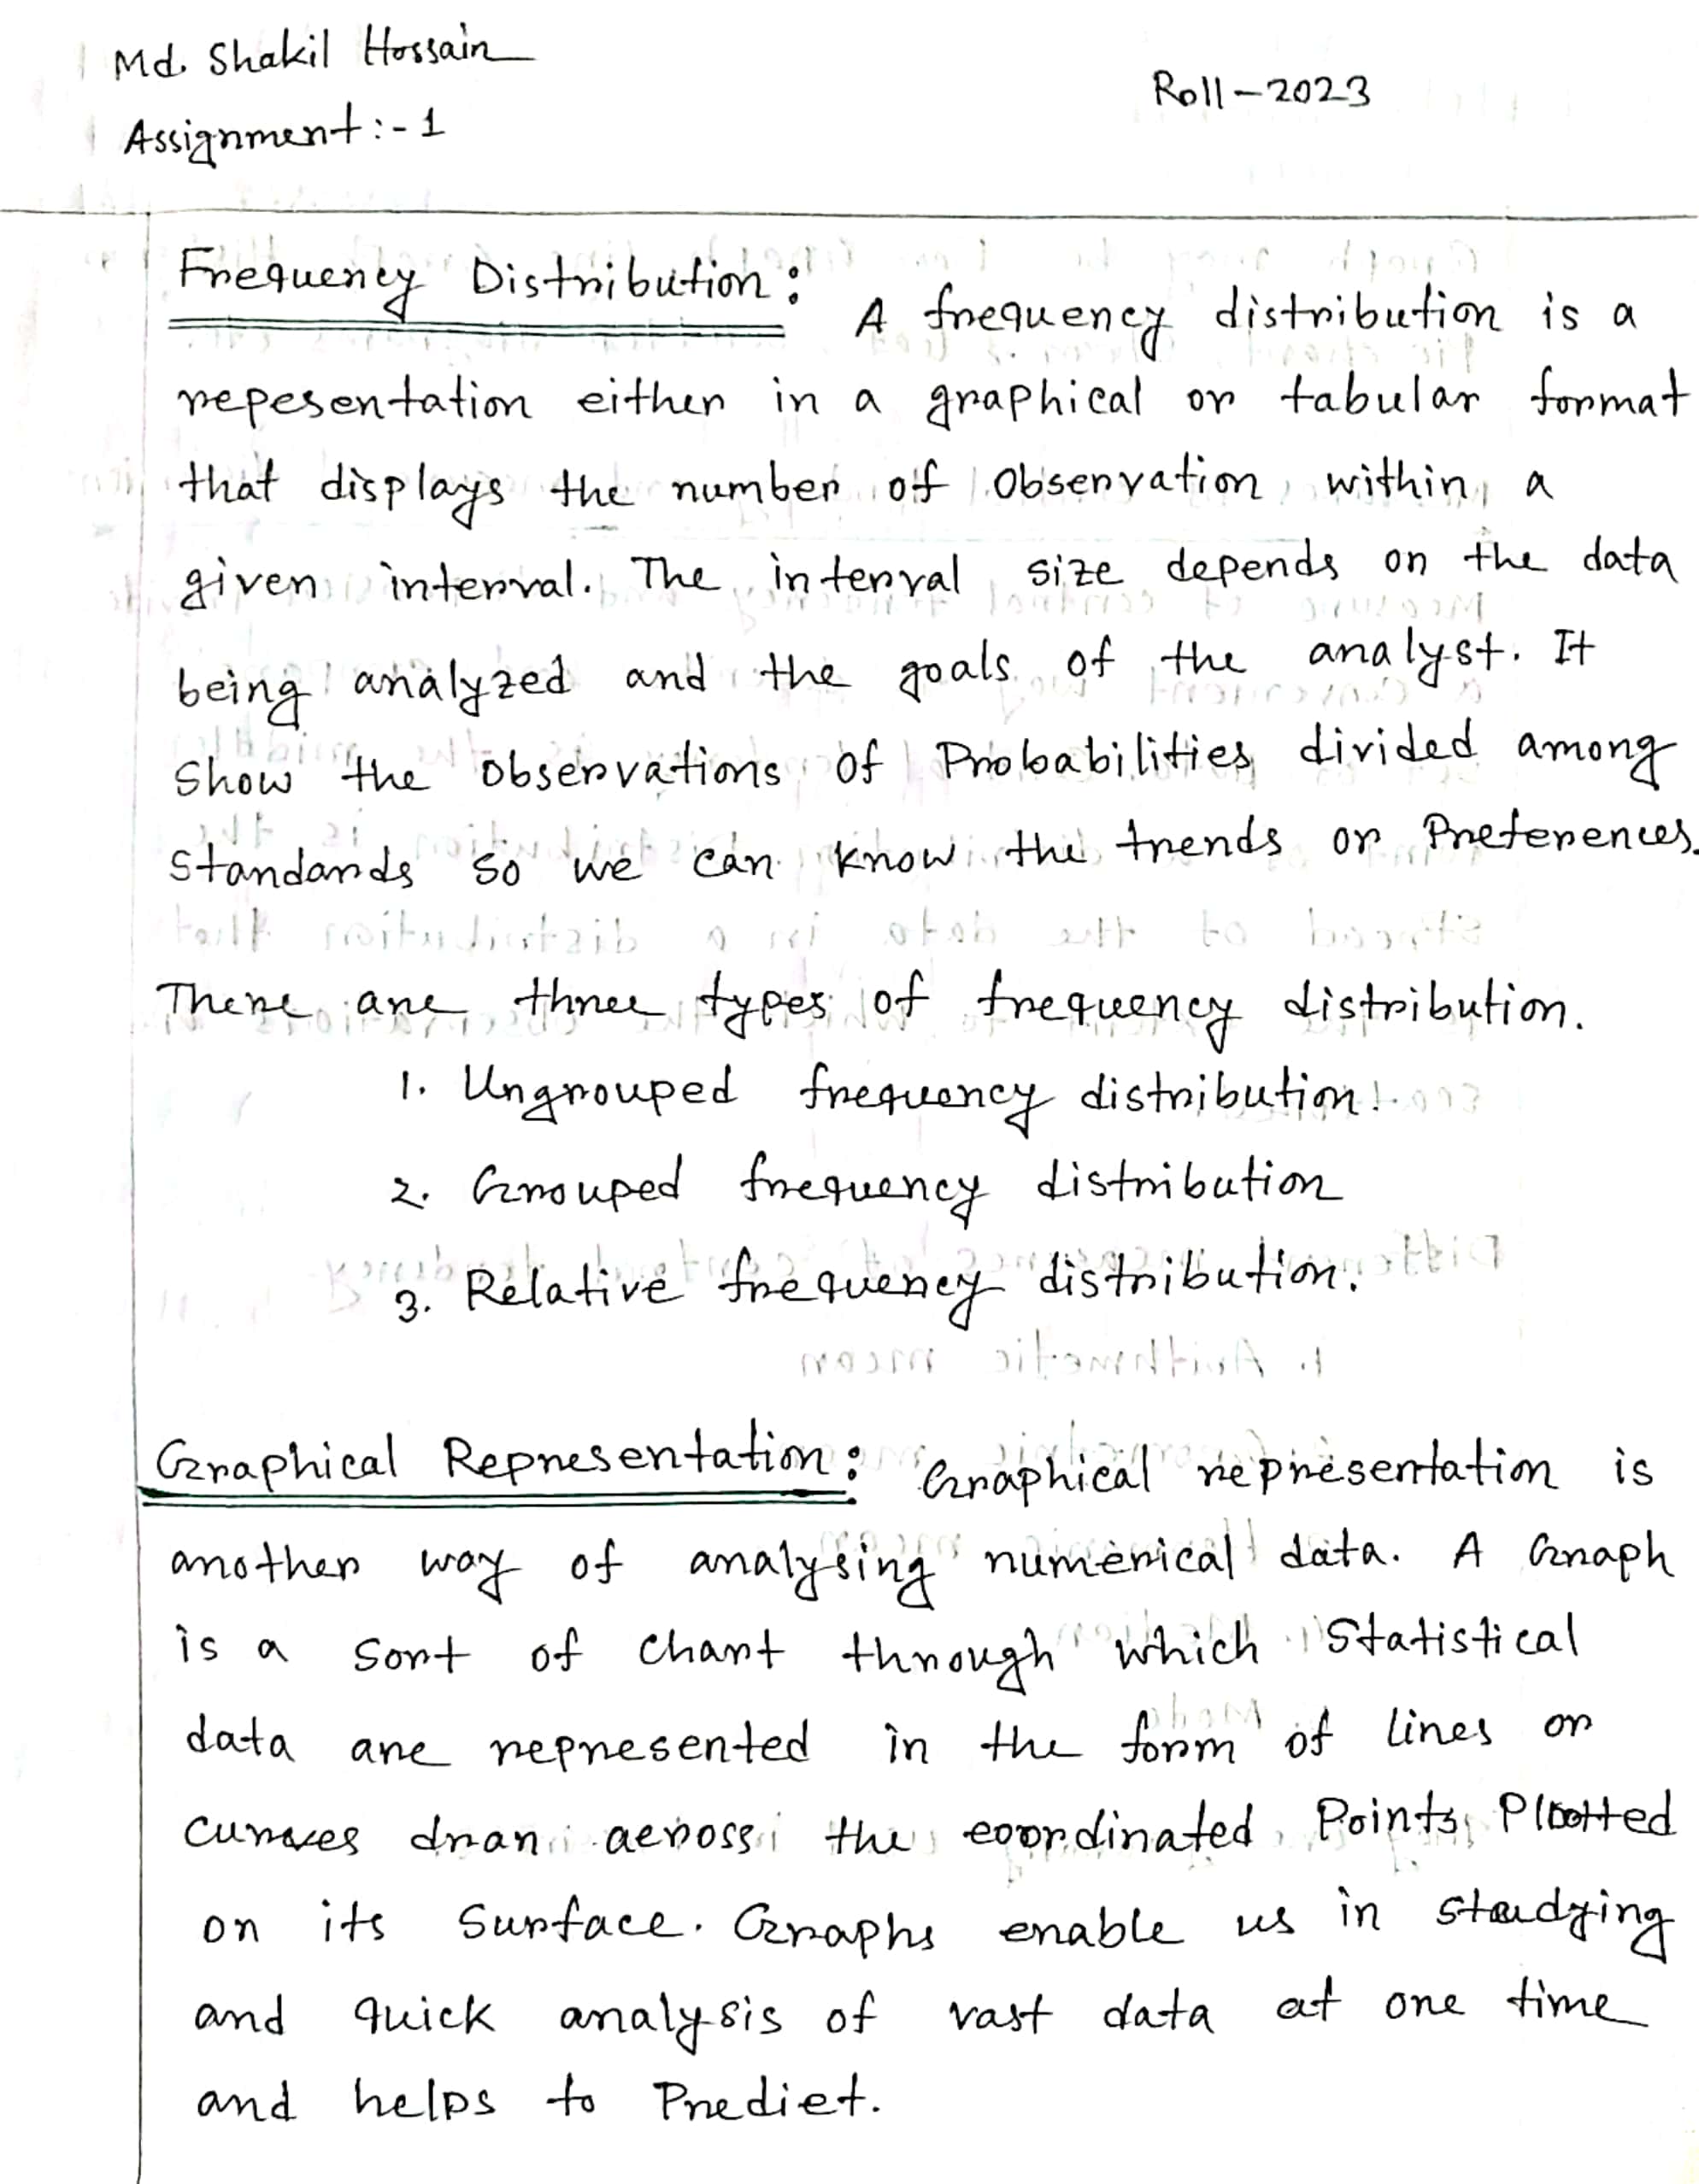 Md. Shakil Hossain
Roll-2023
Assignment:-1
Frequency Distribution: A frequency distribution is a
repesentation either in a graphical or tabular format
that displays the number of observation within a
given interval. The interval size depends on the data
being analyzed and the goals of the analyst. It
show the observations of Probabilities divided among
standards so we can know the trends or Preferences.
There are three types of frequency distribution.
1. Ungrouped frequency distribution.
2. Grouped frequency distribution
3. Relative frequency distribution.
Graphical Representation: Graphical representation is
another way of analysing numerical data. A Graph
is a sort of chart through which statistical
data are represented in the form of lines or
curves dran across the coordinated Points Plotted
on its surface. Graphs enable us in studying
and quick analysis of vast data at one time
and helps to Predict.